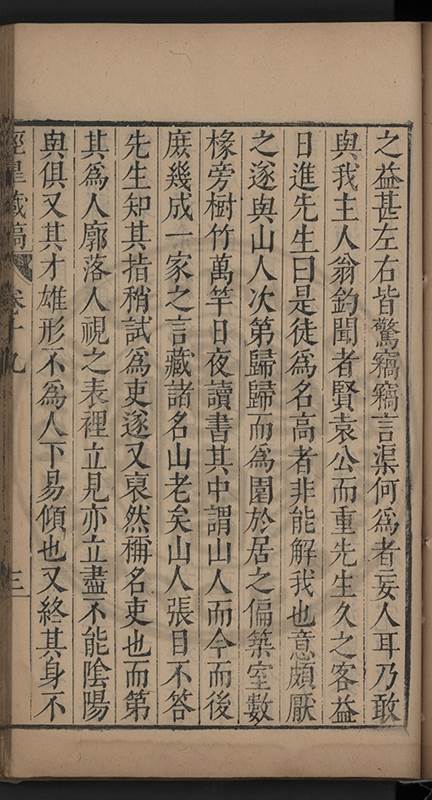 之益甚左右皆驚竊竊言渠何為者妄人耳乃敢
與我主人翁鈞聞者賢袁公而重先生久之客益
日進先生曰是徒為名高者非能解我也意頗厭
之遂與山人次第歸歸而為園於居之偏築室數
椽旁樹竹萬竿日夜讀書其中謂山人而今而後
庶幾成一家之言藏諸名山老矣山人張目不答
先生知其指稍試為吏遂又裒然稱名吏也而第
其為人廓落人視之表裡立見亦立盡不能陰陽
與俱又其才雄形不為人下易傾也又終其身不
卷十九
三